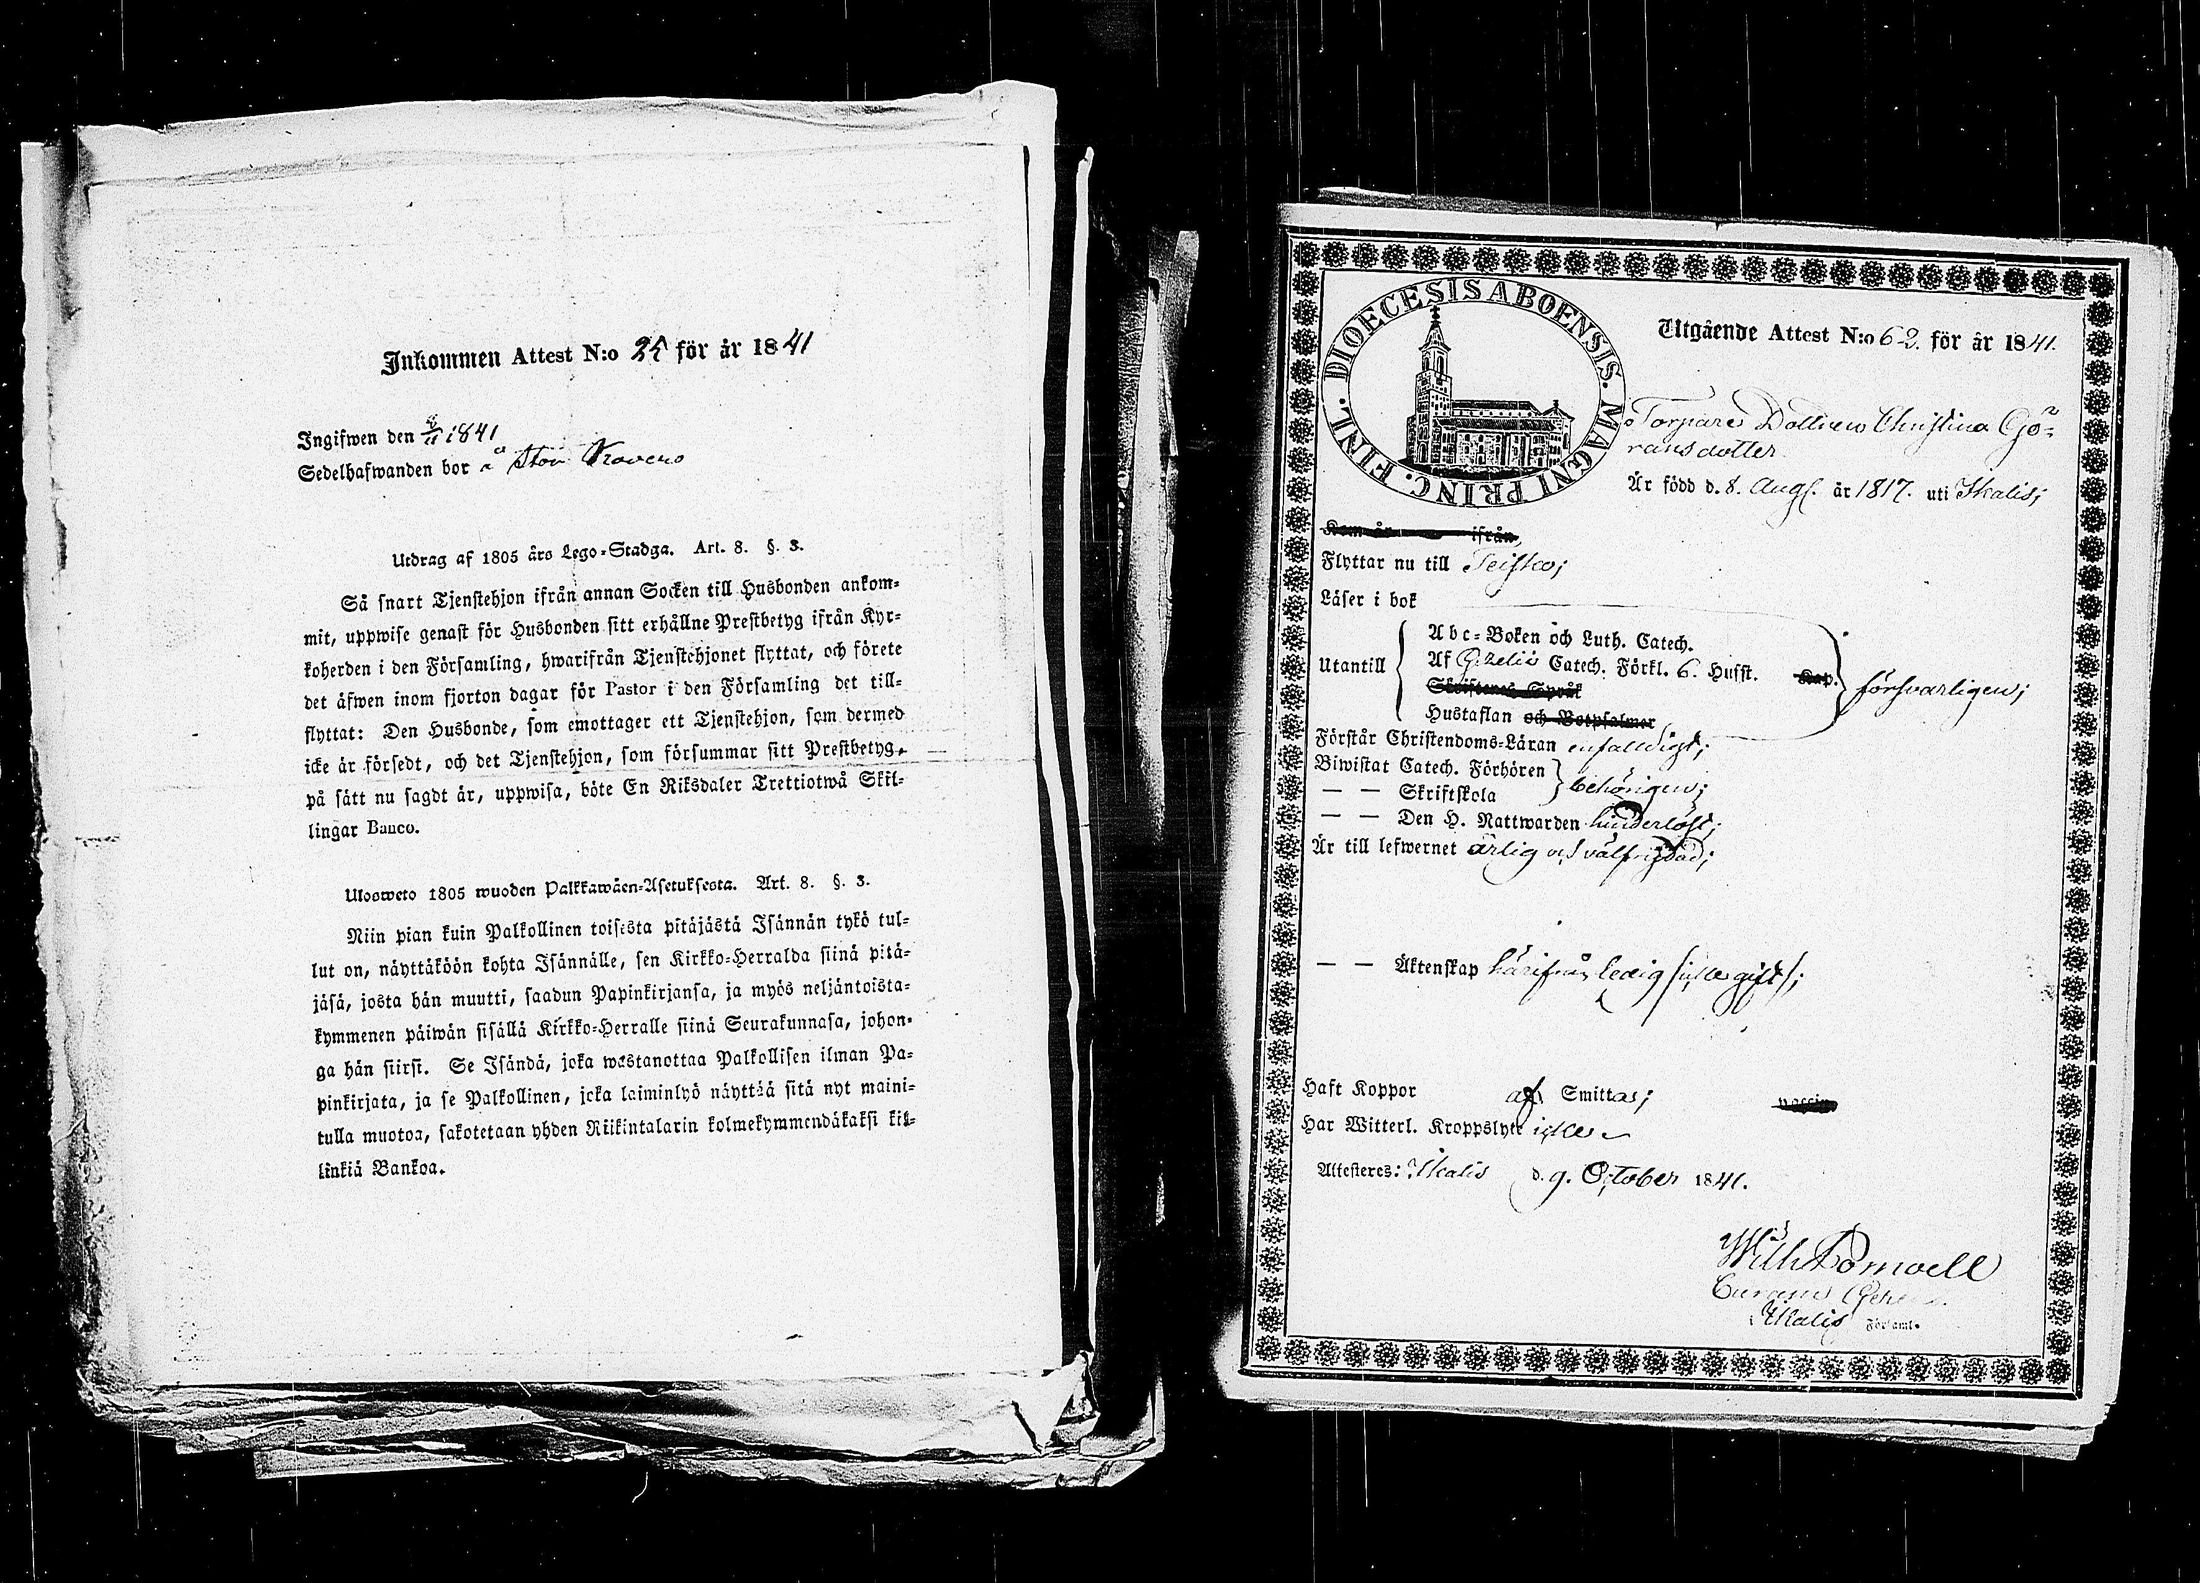 Inkommen Attest N:o 25 för år 1841
Ingifwen den 1841
Sedelhafwanden bor å Stor
Utdrag af 1805 års Lego-Stadga. Art. 8. §. 3.
Så snart Tjenstehjon ifrån annan Socken till Husbonden ankom-
mit, uppwise genast för Husbonden sitt erhållne Prestbetyg ifrån Kyr-
koherden i den Församling, hwarifrån Tjenstehjonet flyttat, och förete
det äfwen inom fjorton dagar för Pastor i den Församling det till-
flyttat: Den Husbonde, som emottager ett Tjenstehjon, som dermed
icke är försedt, och det Tjenstehjon, som försummar sitt Prestbetyg,
på sätt nu sagdt är, uppwisa, böte En Riksdaler Trettiotwå Skil-
lingar Banco.
Ulosweto 1805 wuoden Palkkawäen-Asetuksesta. Art. 8. §. 3.
Niin pian kuin Palkollinen toisesta pitäjästä Isännän tykö tul-
lut on, näyttäköön kohta Isännälle, sen Kirkko-Herralda siinä pitä-
jäsä, josta hän muutti, saadun Papinkirjansa, ja myös neljäntoista-
kymmenen päiwän sisällä Kirkko-Herralle siinä Seurakunnasa, johon-
ga hän siirsi. Se Isändä, joka wastanottaa Palkollisen ilman Pa-
pinkirjata, ja se Palkollinen, joka laiminlyö näyttää sitä nyt maini-
tulla muotoa, sakotetaan yhden Riikintalarin kolmekymmendäkaksi kil-
linkiä Bankoa.
DIOECESIS ABOENSIS. MAGNI PRINC. FINL.
Utgående Attest N:o 62. för år 1841.
Torpare Dottren Christina Gö-
ransdotter
Är född d. 8. Aug. år 1817. uti Ikalis;
Kom år ifrån,
Flyttar nu till Teisko;
Läser i bok
Utantill
Abc-Boken och Luth. Catech.
Af Gezelii Catech. Förkl. 6. Hufst. Kap.
Skriftenes Språk
Hustaflan och Botpsalmer
försvarligen;
Förstår Christendoms-Läran enfaldigt;
Biwistat Catech. Förhören
— — Skriftskola
behörigen;
— — Den H. Nattwarden hinderlöst;
Är till lefwernet ärlig och välfrejdad;
— — Äktenskap härifrån ledig
Haft Koppor af Smittas; vaccin
Har Witterl. Kroppslyte icke
Attesteres: Ikalis d. 9. October 1841.
Wilh
Ikalis Församl.